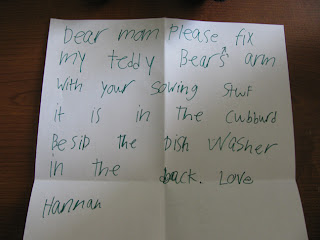 Dear mom Please fix
my teddy Bear's arm
with your sowing stuf
it is in the cubburd
Besid the Dish Washer
in the back. Love
Hannah